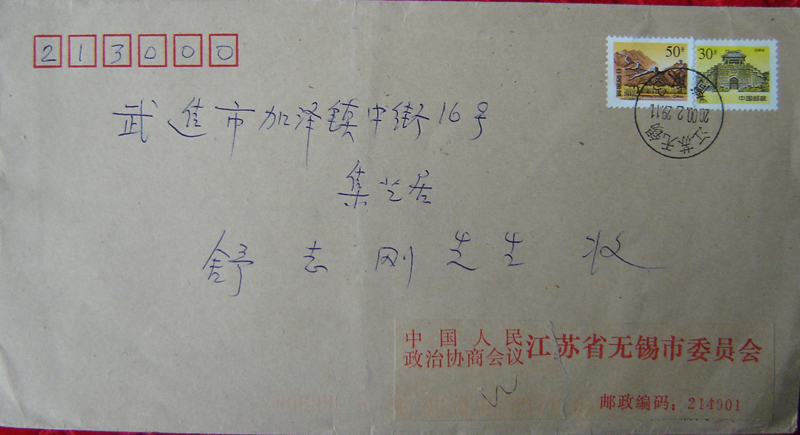 213000
50分
30分
中国邮政
2000.2.29.11
江苏无锡
武进市加泽镇中街16号
集芝居
舒志刚先生 收
中国人民
政治协商会议
江苏省无锡市委员会
邮政编码：214001